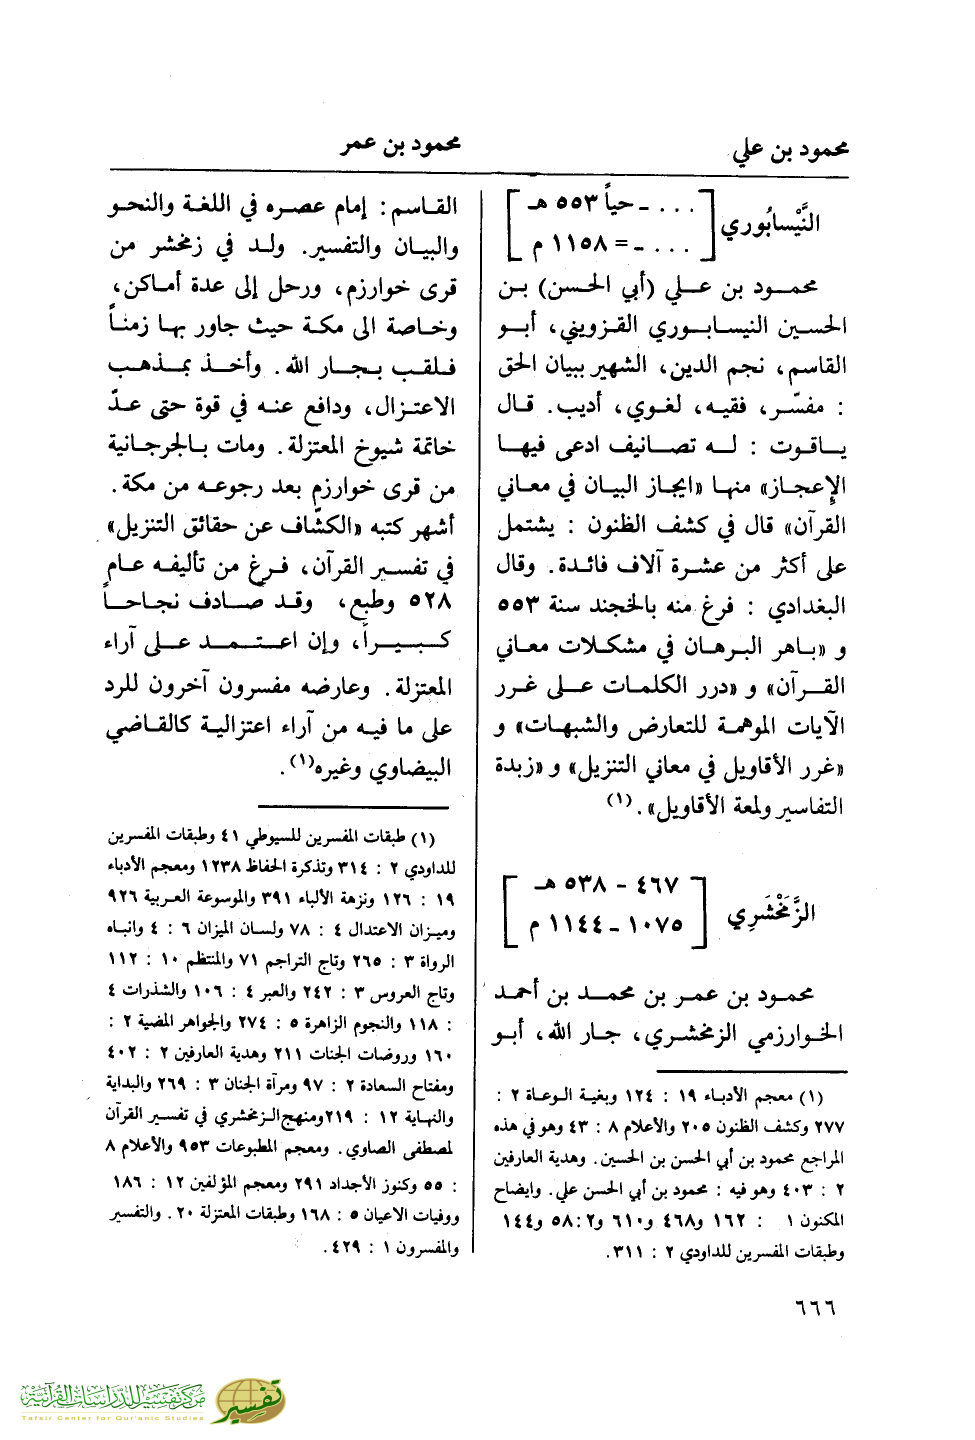 محمود بن علي
محمود بن عمر
النَّيْسابُوري
. . . ـ حياً ٥٥٣ هـ
. . . ـ = ١١٥٨ م
محمود بن علي (أبي الحسن) بن
الحسين النيسابوري القزويني، أبو
القاسم، نجم الدين، الشهير ببيان الحق
: مفسّر، فقيه، لغوي، أديب. قال
ياقوت : له تصانيف ادعى فيها
الإعجاز» منها «ايجاز البيان في معاني
القرآن» قال في كشف الظنون : يشتمل
على أكثر من عشرة آلاف فائدة. وقال
البغدادي : فرغ منه بالخجند سنة ٥٥٣
و «باهر البرهان في مشكلات معاني
القرآن» و «درر الكلمات على غرر
الآيات الموهمة للتعارض والشبهات» و
«غرر الأقاويل في معاني التنزيل» و «زبدة
التفاسير ولمعة الأقاويل».(١)
الزَّمَخْشَرِي
٤٦٧ - ٥٣٨ هـ
١٠٧٥ ـ ١١٤٤ م
محمود بن عمر بن محمد بن أحمد
الخوارزمي الزمخشري، جار الله، أبو
(١) معجم الأدباء ١٩ : ١٢٤ وبغية الوعاة ٢ :
٢٧٧ وكشف الظنون ٢٠٥ والأعلام ٨ : ٤٣ وهو في هذه
المراجع محمود بن أبي الحسن بن الحسين. وهدية العارفين
٢ : ٤٠٣ وهو فيه : محمود بن أبي الحسن علي. وايضاح
المكنون ١ : ١٦٢ و٤٦٨ و٦١٠ و٥٨:٢ و١٤٤
وطبقات المفسرين للداودي ٢ : ٣١١.
القاسم: إمام عصره في اللغة والنحو
والبيان والتفسير. ولد في زمخشر من
قرى خوارزم، ورحل إلى عدة أماكن،
وخاصة الى مكة حيث جاور بها زمناً
فلقب بجار الله. وأخذ بمذهب
الاعتزال، ودافع عنه في قوة حتى عدّ
خاتمة شيوخ المعتزلة. ومات بالجرجانية
من قرى خوارزم بعد رجوعه من مكة.
أشهر كتبه «الكشّاف عن حقائق التنزيل»
في تفسير القرآن، فرغ من تأليفه عام
٥٢٨ وطبع، وقد صادف نجاحاً
كبيراً، وإن اعتمد على آراء
المعتزلة. وعارضه مفسرون آخرون للرد
على ما فيه من آراء اعتزالية كالقاضي
البيضاوي وغيره(١).
(١) طبقات المفسرين للسيوطي ٤١ وطبقات المفسرين
للداودي ٢ : ٣١٤ وتذكرة الحفاظ ١٢٣٨ ومعجم الأدباء
١٩ : ١٢٦ ونزهة الألباء ٣٩١ والموسوعة العربية ٩٢٦
وميزان الاعتدال ٤ : ٧٨ ولسان الميزان ٦ : ٤ وانباه
الرواة ٣ : ٢٦٥ وتاج التراجم ٧١ والمنتظم ١٠ : ١١٢
وتاج العروس ٣ : ٢٤٢ والعبر ٤ : ١٠٦ والشذرات ٤
: ١١٨ والنجوم الزاهرة ٥ : ٢٧٤ والجواهر المضية ٢ :
١٦٠ وروضات الجنات ٢١١ وهدية العارفين ٢ : ٤٠٢
ومفتاح السعادة ٢ : ٩٧ ومرآة الجنان ٣ : ٢٦٩ والبداية
والنهاية ١٢ : ٢١٩ومنهج الزمخشري في تفسير القرآن
لمصطفى الصاوي. ومعجم المطبوعات ٩٥٣ والأعلام ٨
: ٥٥ وكنوز الأجداد ٢٩١ ومعجم المؤلفين ١٢ : ١٨٦
ووفيات الاعيان ٥ : ١٦٨ وطبقات المعتزلة ٢٠. والتفسير
والمفسرون ١ : ٤٢٩.
٦٦٦
مركز تفسير للدراسات القرآنية
Tafsir Center for Qur'anic Studies
تفسير